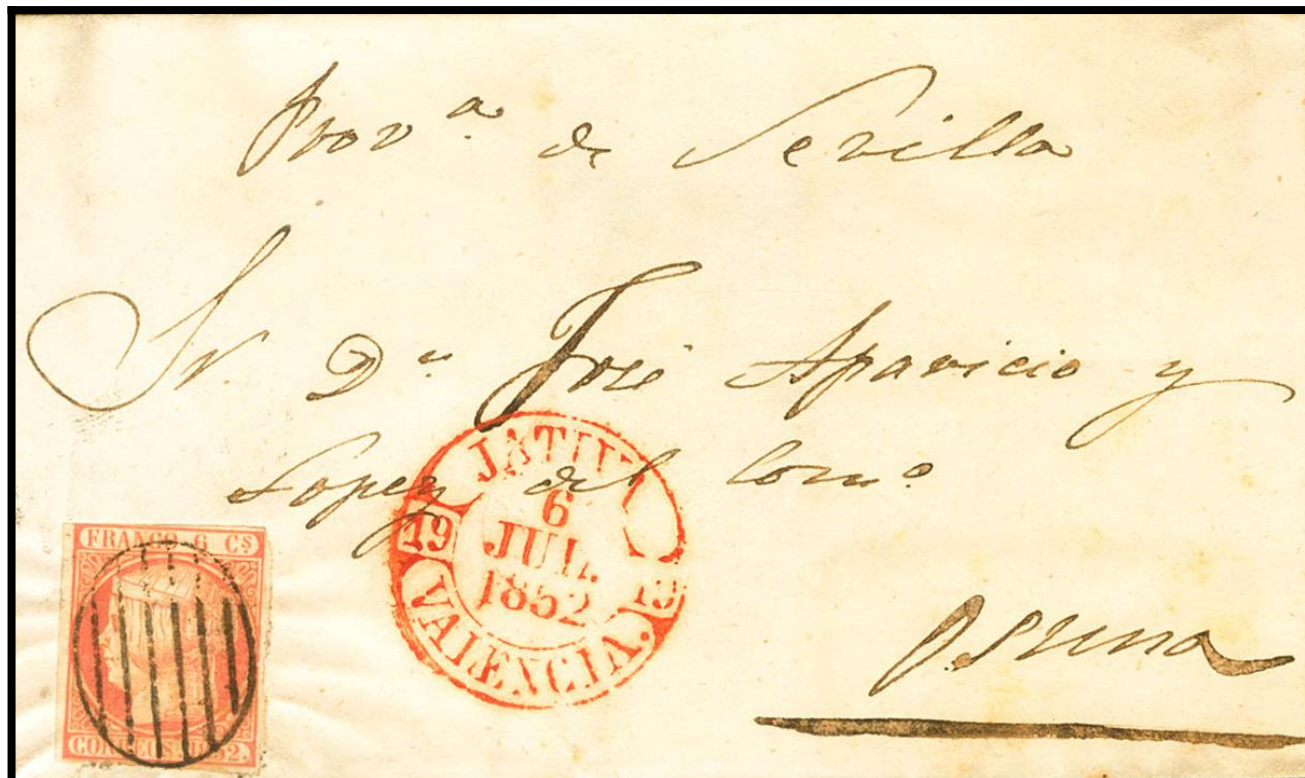 Prov.ª de Sevilla
Sr. D.ⁿ José Aparicio y
Lopez del Com.º
JATIVA
6
JUL.
1852
19 19
VALENCIA.
FRANCO 6 Cs
CORREOS 1852.
Osuna